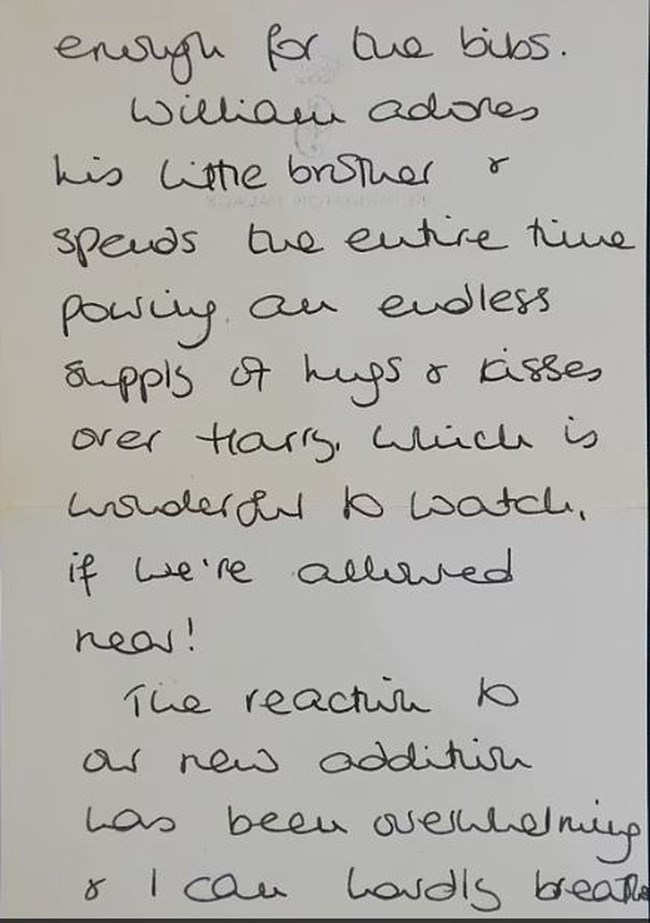 enough for the bibs.
William adores
his little brother &
spends the entire time
pouring an endless
supply of hugs & kisses
over Harry, which is
wonderful to watch,
if we're allowed
near!
The reaction to
our new addition
has been overwhelming
& I can hardly breathe
KENSINGTON PALACE